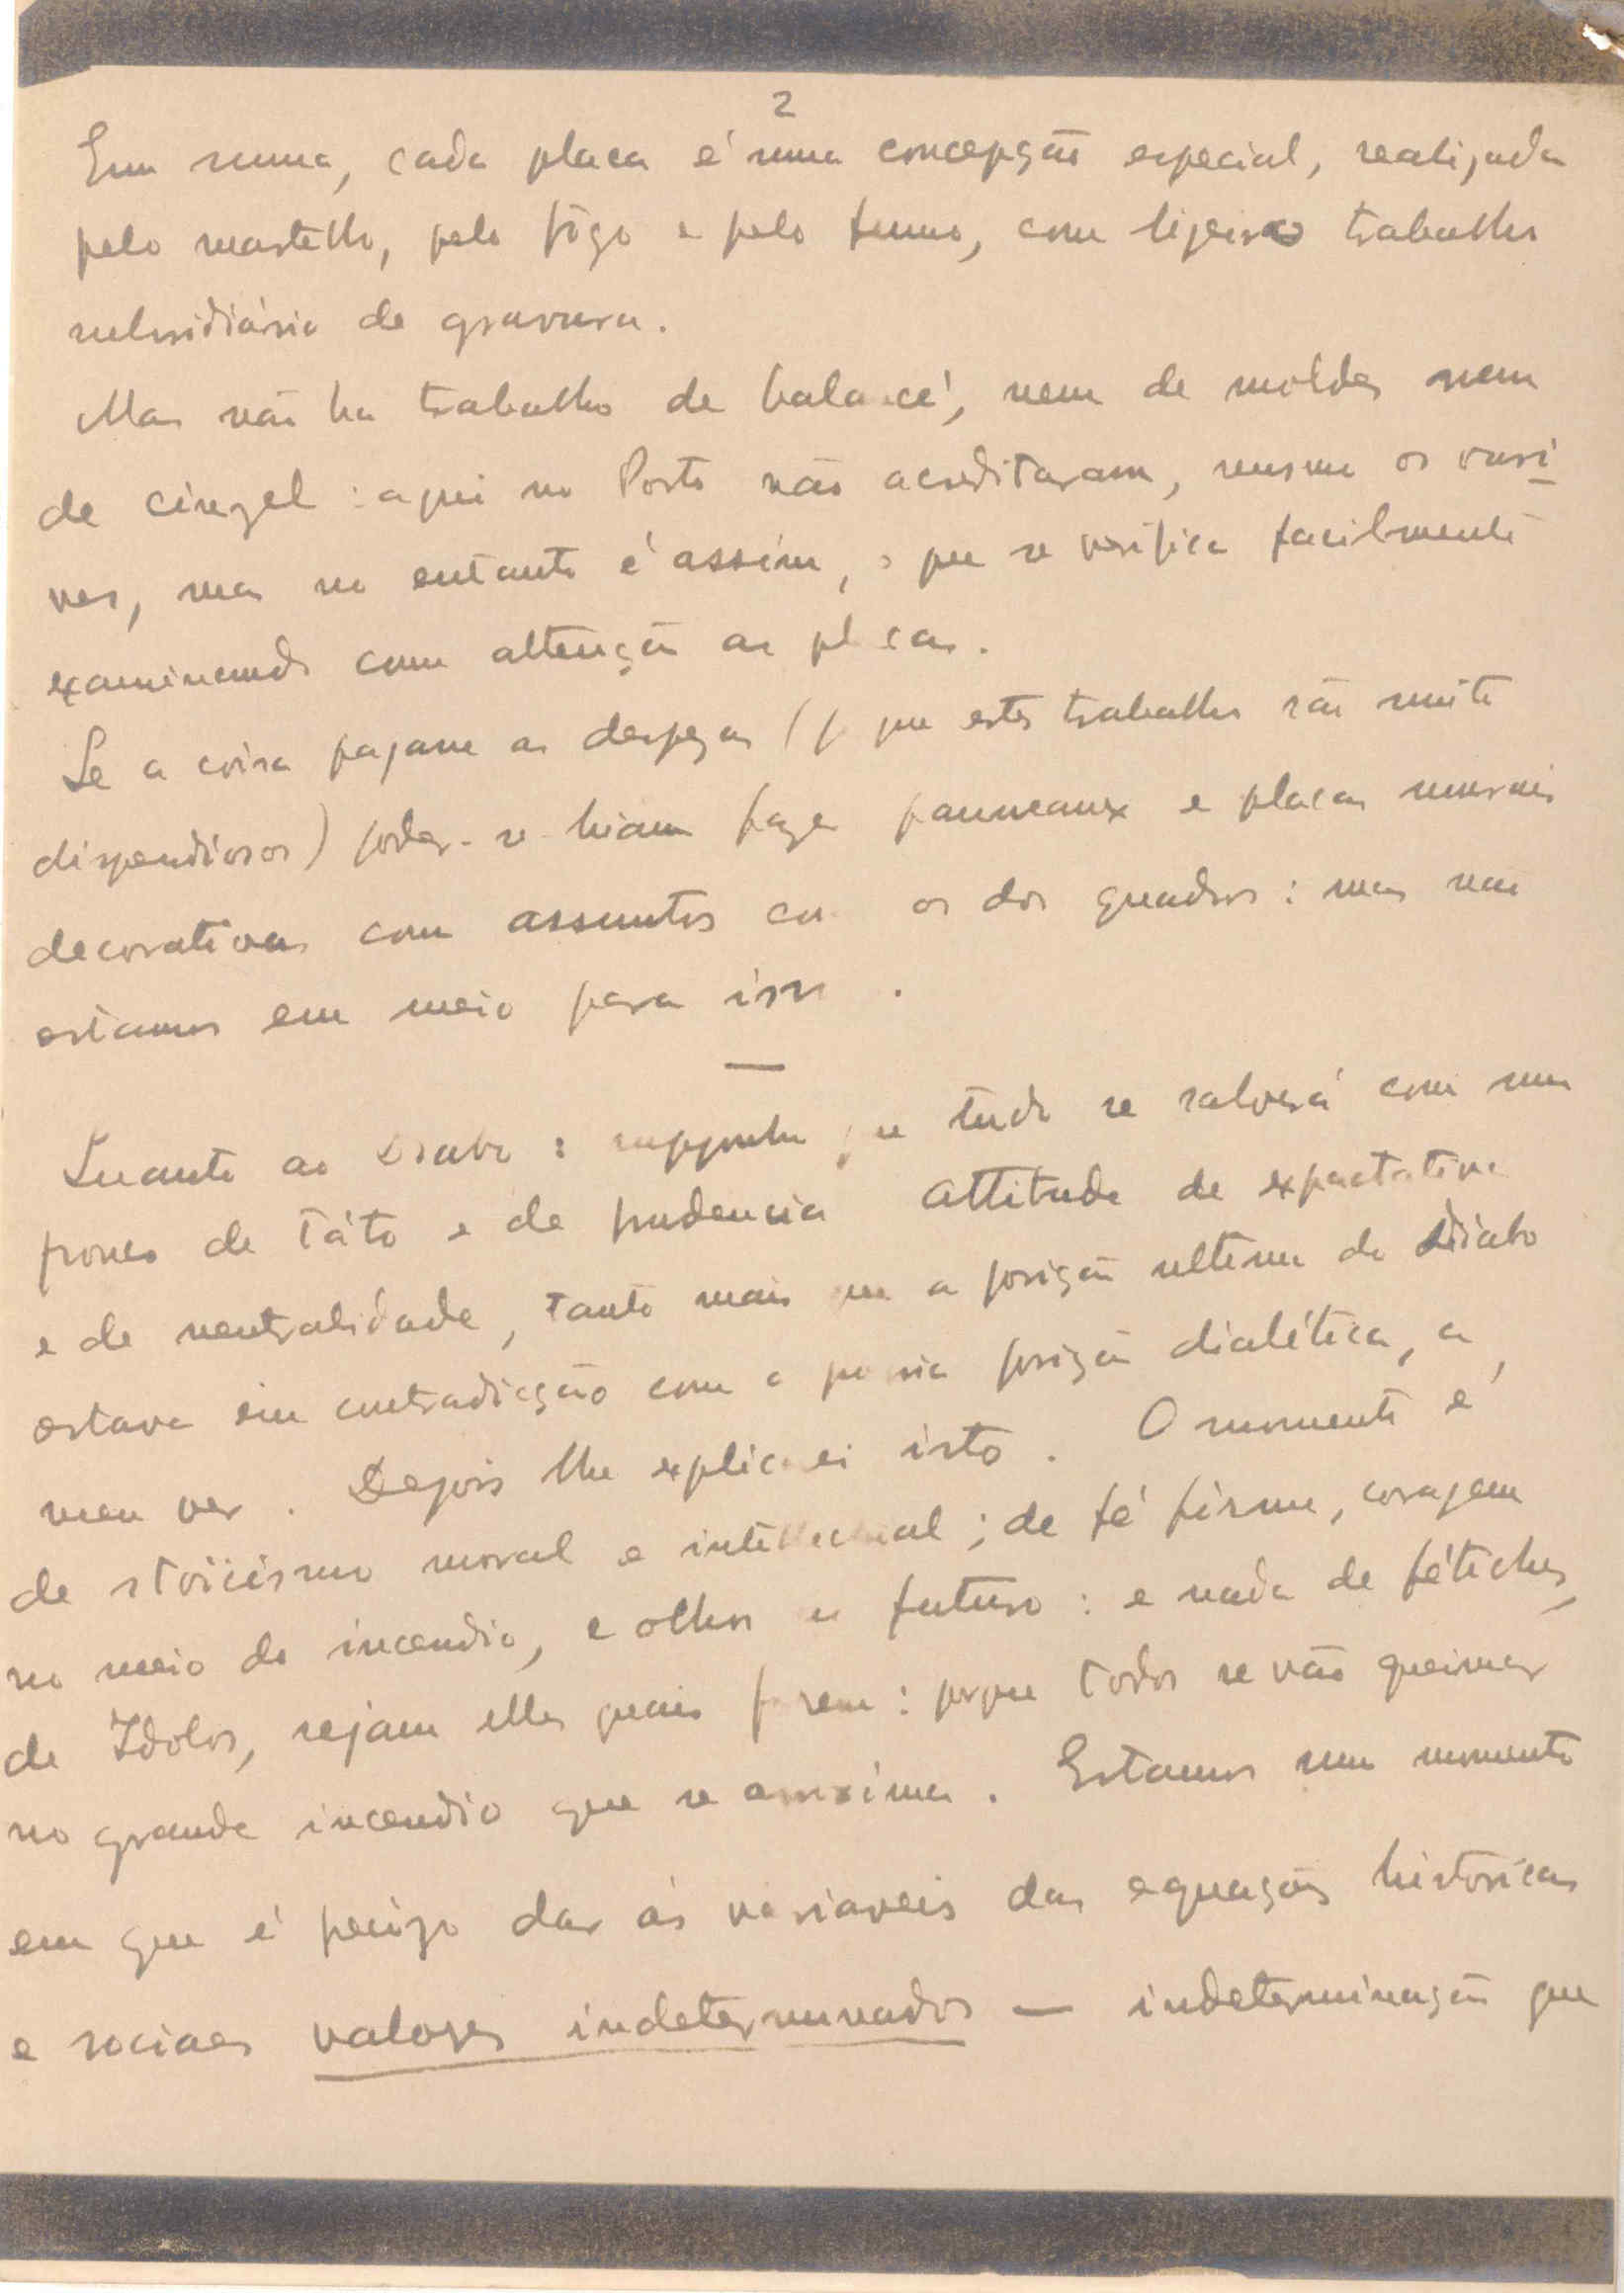 2
Em suma, cada placa é uma concepção especial, realizada
pelo martello, pelo fôgo e pelo fumo, com ligeiro trabalho
subsidiário de gravura.
Mas não ha trabalho de balancé, nem de moldes nem
de cinzel : aqui no Porto não acreditaram, mesmo os ouri-
ves, mas no entanto é assim, o que se verifica facilmente
examinando com attenção as placas.
Se a coisa pagasse as despezas (p que estes trabalhos são muito
dispendiosos) poder-se-hiam fazer panneaux e placas murais
decorativas com assuntos como os dos quadros : mas não
estamos em meio para isso.
—
Quanto ao Diabo : supponho que tudo se salverá com um
pouco de táto e de prudencia attitude de expectativa
e de neutralidade, tanto mais que a posição ultima do Diabo
estava em contradicção com a posição dialética, a
meu ver. Depois lhe explicarei isto. O momento é
de stoicismo moral e intellectual ; de fé firme, coragem
no meio do incendio, e olhos no futuro : e nada de fétiches,
de Idolos, sejam elles quais forem : porque todos se vão queimar
no grande incendio que se aproxima. Estamos num momento
em que é preciso dar ás variaveis das equações historicas
e sociaes valores indeterminados — indeterminação que